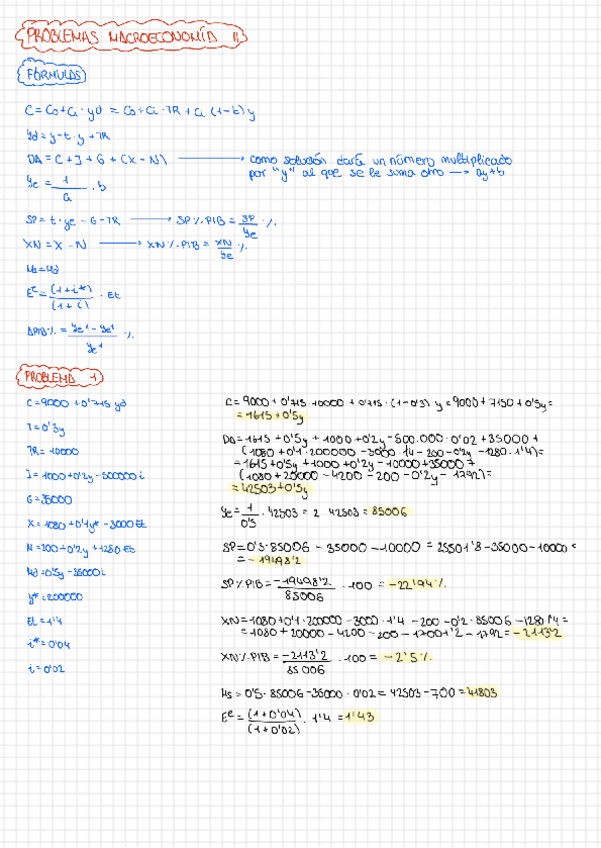 PROBLEMAS MACROECONOMÍA II
FÓRMULAS
C = C0 + C1 · yd = C0 + C1 · TR + C1 (1-t) y
Yd = y - t · y + TR
DA = C + I + G + (X - N) → como solución dará un número multiplicado
por "y" al que se le suma otro → ay + b
Ye = 1/a · b
SP = t · ye - G - TR → SP%PIB = SP/Ye %
XN = X - N → XN%PIB = XN/Ye %
Ms = Md
E^e = (1+i*)/(1+i) · Et
ΔPIB% = (Ye' - Ye')/Ye' %
PROBLEMA 1
C = 9000 + 0'715 yd
T = 0'3y
TR = 10000
I = 1000 + 0'2y - 500000 i
G = 35000
X = 1080 + 0'1y* - 3000 Et
M = 200 + 0'2y + 1280 Et
Md = 0'5y - 35000 i
y* = 200000
Et = 1'4
i* = 0'04
i = 0'02
C = 9000 + 0'715 · 10000 + 0'715 · (1-0'3) y = 9000 + 7150 + 0'5y =
= 1615 + 0'5y
DA = 1615 + 0'5y + 1000 + 0'2y - 500.000 · 0'02 + 35000 +
(1080 + 0'1 · 200000 - 3000 · 1'4 - 200 - 0'2y - 1280 · 1'4) =
= 1615 + 0'5y + 1000 + 0'2y - 10000 + 35000 +
(1080 + 20000 - 4200 - 200 - 0'2y - 1792) =
= 42503 + 0'5y
Ye = 1/0'5 · 42503 = 2 · 42503 = 85006
SP = 0'3 · 85006 - 35000 - 10000 = 25501'8 - 35000 - 10000 =
= -19498'2
SP%PIB = -19498'2/85006 · 100 = -22'94%
XN = 1080 + 0'1 · 200000 - 3000 · 1'4 - 200 - 0'2 · 85006 - 1280 · 1'4 =
= 1080 + 20000 - 4200 - 200 - 17001'2 - 1792 = -2113'2
XN%PIB = -2113'2/85006 · 100 = -2'5%
Ms = 0'5 · 85006 - 35000 · 0'02 = 42503 - 700 = 41803
E^e = (1+0'04)/(1+0'02) · 1'4 = 1'43